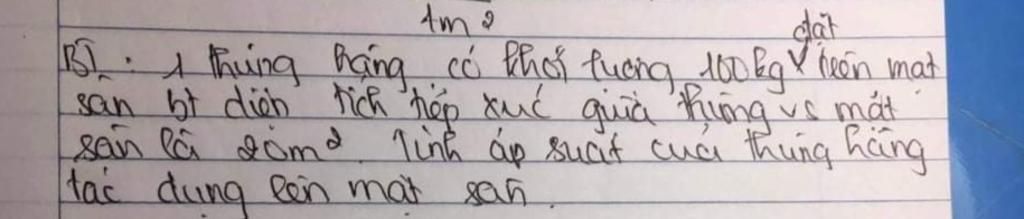 1m²
đặt
BT: 1 thùng hàng có khối lượng 100kg v trên mặt
sàn bt diện tích tiếp xúc giữa thùng vs mặt
sàn là 20m². Tính áp suất của thùng hàng
tác dụng lên mặt sàn.